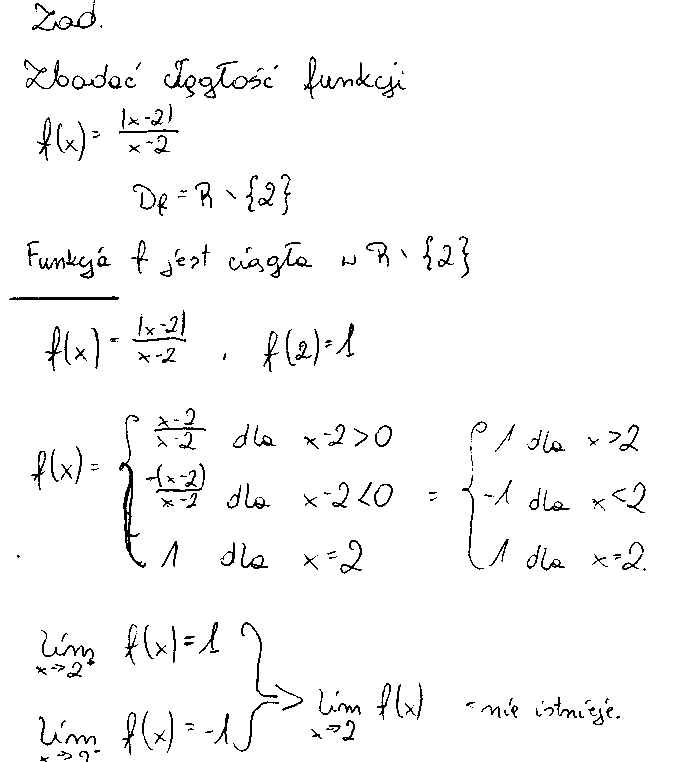 Zad.
Zbadać ciągłość funkcji
f(x) = |x-2| / x-2
Df = R \ {2}
Funkcja f jest ciągła w R \ {2}
f(x) = |x-2| / x-2 , f(2)=1
f(x) = { x-2 / x-2 dla x-2>0 = { 1 dla x>2
-(x-2) / x-2 dla x-2<0 -1 dla x<2
1 dla x=2 1 dla x=2.
lim x→2⁺ f(x) = 1
} => lim x→2 f(x) - nie istnieje.
lim x→2⁻ f(x) = -1